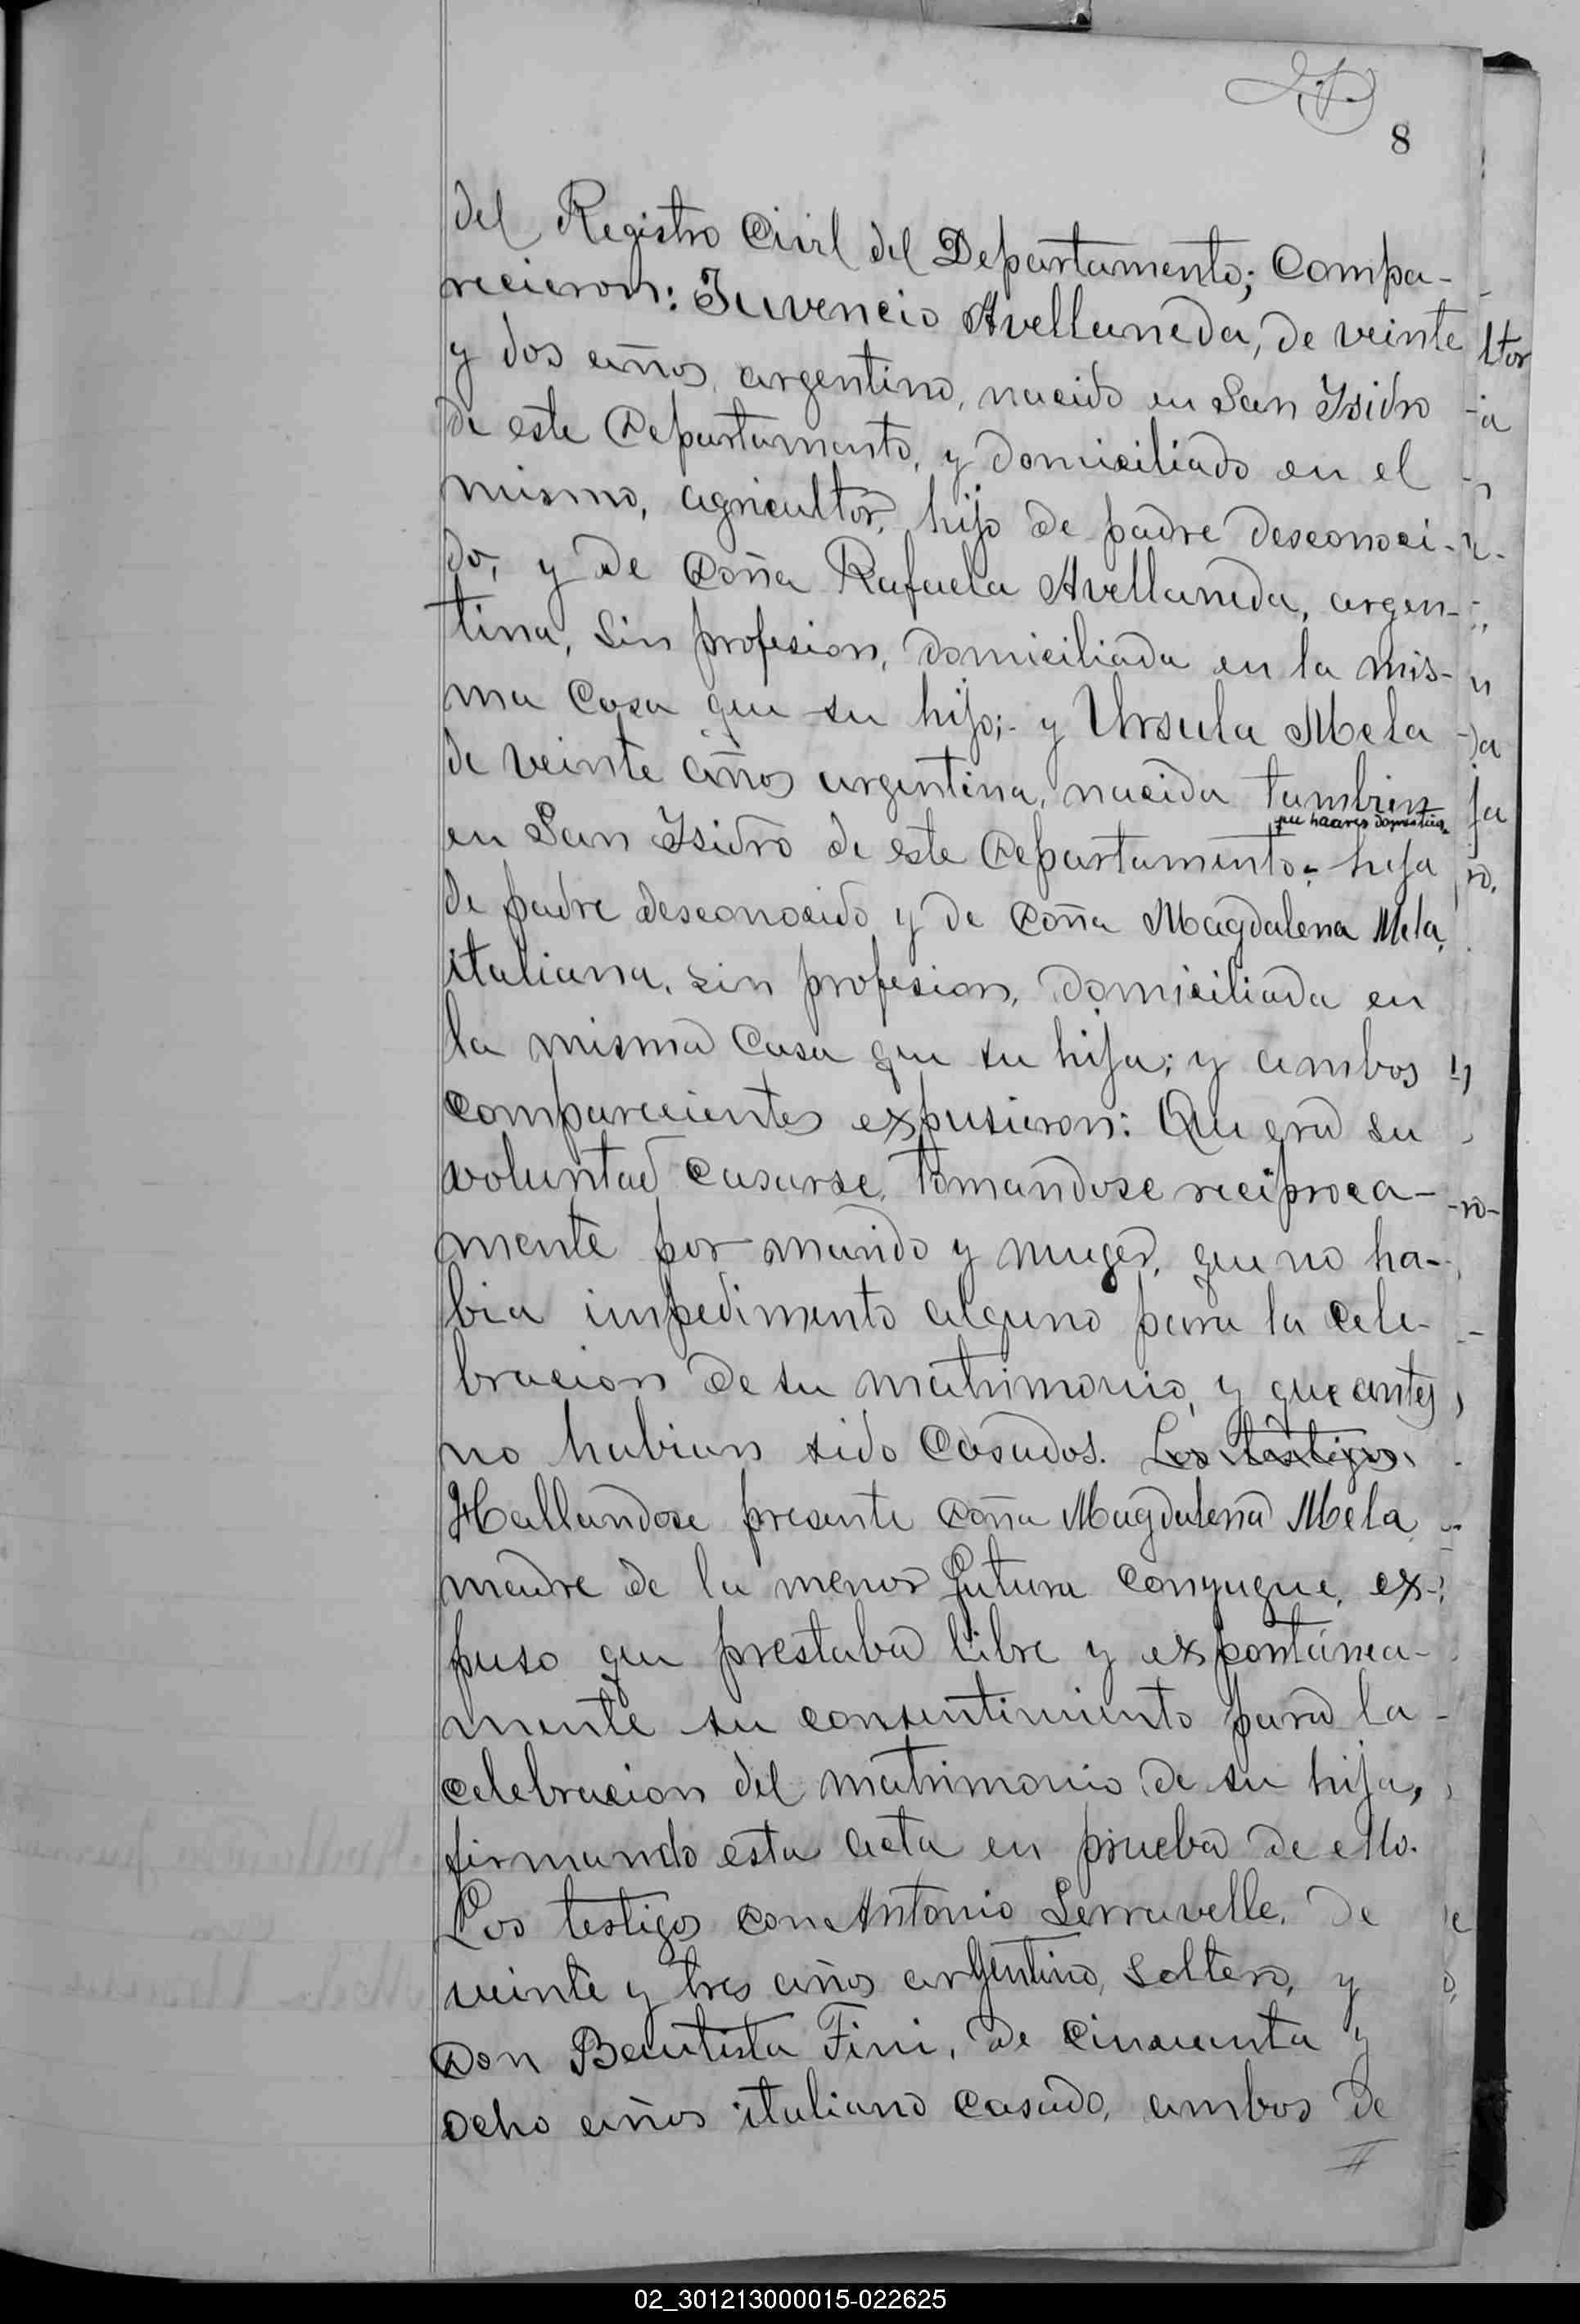 8
del Registro Civil del Departamento; Compa-
recieron: Juvencio Avellaneda, de veinte
y dos años, argentino, nacido en San Isidro
de este Departamento, y domiciliado en el
mismo, agricultor, hijo de padre desconoci-
do, y de Doña Rafaela Avellaneda, argen-
tina, sin profesion, domiciliada en la mis-
ma Casa que su hijo;- y Ursula Mela
de veinte años argentina, nacida tambien
domestica
en San Isidro de este Departamento, hija
de padre desconocido y de Doña Magdalena Mela,
italiana, sin profesion, domiciliada en
la misma Casa que su hija; y ambos
comparecientes expusieron: Que era su
voluntad casarse, tomandose reciproca-
mente por marido y muger, que no ha-
bia impedimento alguno para la cele-
bracion de su matrimonio, y que antes
no habian sido Casados. Los testigos.
Hallandose presente Doña Magdalena Mela
madre de la menor futura conyugue, ex-
puso que prestaba libre y expontánea-
mente su consentimiento para la
celebracion del matrimonio de su hija,
firmando esta acta en prueba de ello.
Los testigos Don Antonio Serravelle, de
veinte y tres años argentino, soltero, y
Don Bautista Fini, de cincuenta y
ocho años italiano casado, ambos de
02_301213000015-022625